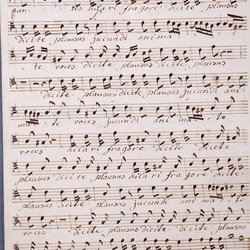 tos hilari fragore dicite plausus
dicite plausus jucundi anima
te voces dicite plausus dicite plausus
dicite plausus jucundi ani ma
te voces jucundi anima te
voces hilari fragore dicite
plausus dicite plausus hilari fragore dicite
dicite plausus jucundi anima te
voces dicite plausus dicite